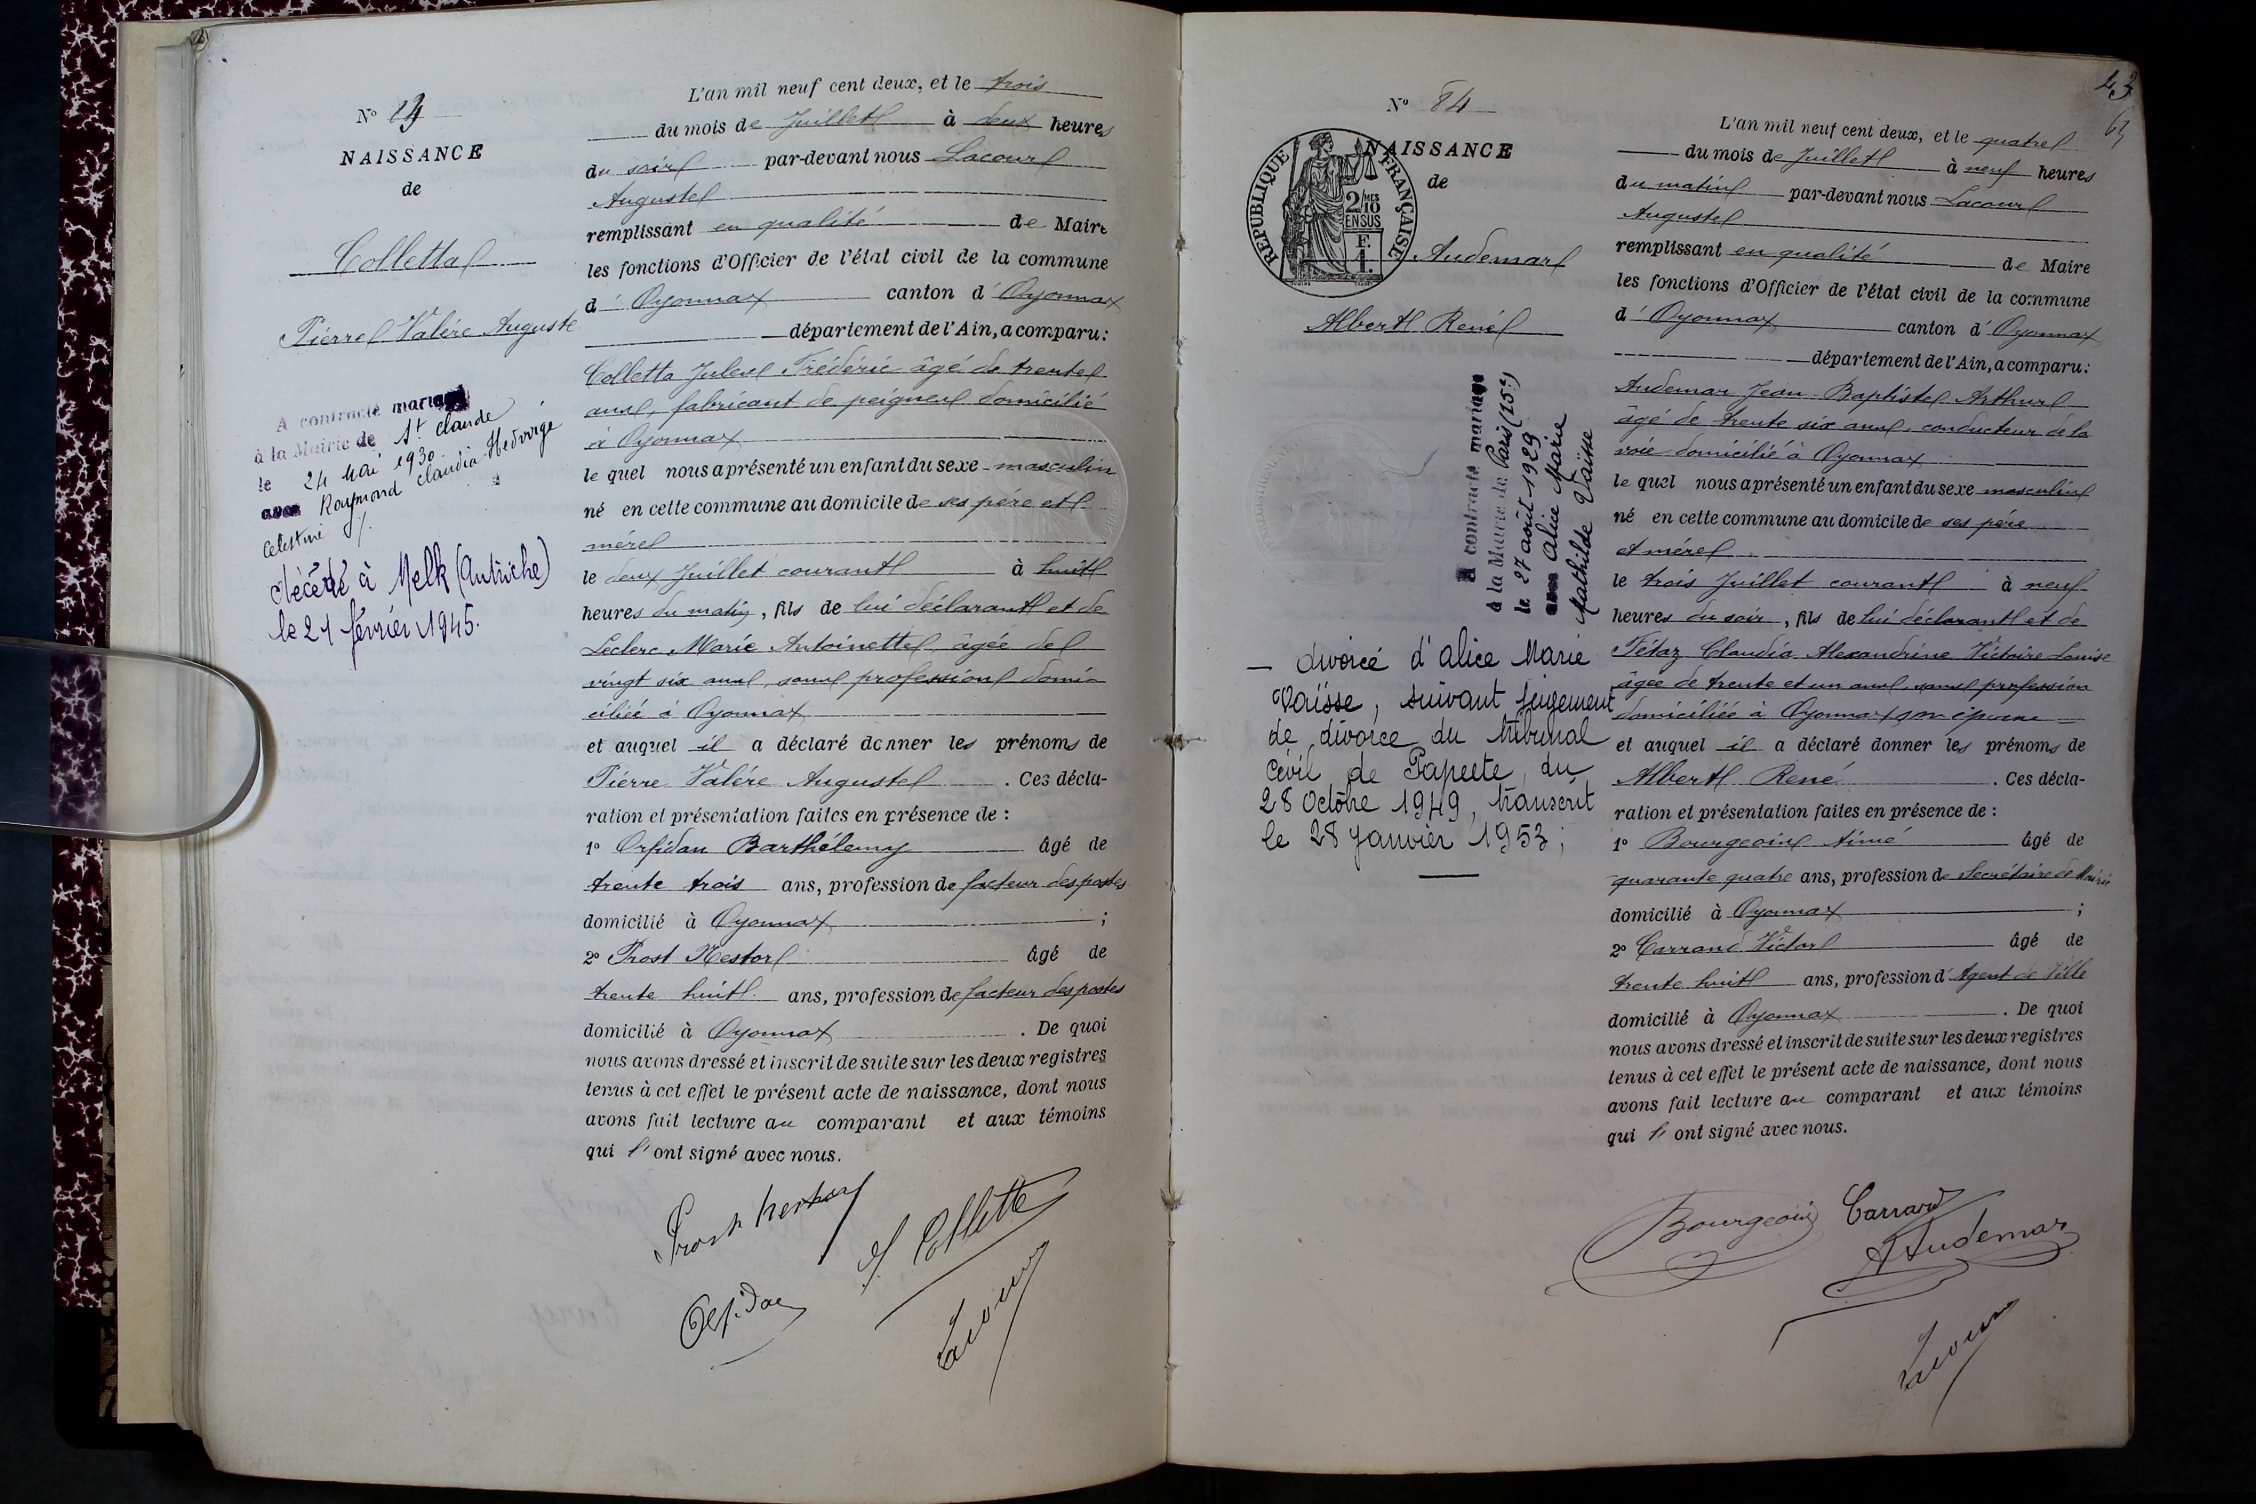 N°
NAISSANCE
de
Colletta
Pierre Valére Auguste
A contracté mariage
à la Mairie de St Claude
le 24 Mai 1930
avec Raymond Claudia Hedwige
Celestine
décédé à Melk (Autriche)
le 21 février 1945.
L'an mil neuf cent deux, et le trois
du mois de Juillet à deux heures
du soir par-devant nous Lacour
Auguste
remplissant en qualité de Maire
les fonctions d'Officier de l'état civil de la commune
d' Oyonnax canton d' Oyonnax
département de l'Ain, a comparu:
Colletta Jules Frédéric âgé de trente
ans, fabricant de peignes domicilié
à Oyonnax
le quel nous a présenté un enfant du sexe masculin
né en cette commune au domicile de ses père et
mère
le deux Juillet courant à huit
heures du matin, fils de lui déclarant et de
Leclerc Marie Antoinette, âgée de
vingt six ans, sans profession domi-
ciliée à Oyonnax
et auquel il a déclaré donner les prénoms de
Pierre Valére Auguste. Ces décla-
ration et présentation faites en présence de :
1° Orfidan Barthélemy âgé de
trente trois ans, profession de facteur des postes
domicilié à Oyonnax ;
2° Prost Nestor âgé de
trente huit ans, profession de facteur des postes
domicilié à Oyonnax. De quoi
nous avons dressé et inscrit de suite sur les deux registres
tenus à cet effet le présent acte de naissance, dont nous
avons fait lecture au comparant et aux témoins
qui l'ont signé avec nous.
Prost Nestor
J. Colletta
Orfidan
Lacour
43
N° 84
NAISSANCE
de
REPUBLIQUE FRANÇAISE
2/10 MES
EN SUS
F.
1.
Audemar
Albert René
A contracté mariage
à la Mairie de Paris (15e)
le 27 août 1929
avec Alice Marie
Mathilde Vaïsse
— divorcé d'Alice Marie
Vaïsse, suivant jugement
de divorce du tribunal
Civil de Papeete du
28 Octobre 1949, transcrit
le 28 Janvier 1953;
L'an mil neuf cent deux, et le quatre
du mois de Juillet à neuf heures
du matin par-devant nous Lacour
Auguste
remplissant en qualité de Maire
les fonctions d'Officier de l'état civil de la commune
d' Oyonnax canton d' Oyonnax
département de l'Ain, a comparu:
Audemar Jean Baptiste Arthur
âgé de trente six ans, conducteur de la
voie domicilié à Oyonnax
le quel nous a présenté un enfant du sexe masculin
né en cette commune au domicile de ses père
et mère
le trois Juillet courant à neuf
heures du soir, fils de lui déclarant et de
Tétaz Claudia Alexandrine Victoire Louise
âgée de trente et un ans, sans profession
domiciliée à Oyonnax son épouse
et auquel il a déclaré donner les prénoms de
Albert René. Ces décla-
ration et présentation faites en présence de :
1° Bourgeois Aimé âgé de
quarante quatre ans, profession de Secrétaire de Mairie
domicilié à Oyonnax ;
2° Carrand Victor âgé de
trente huit ans, profession d' Agent de Ville
domicilié à Oyonnax. De quoi
nous avons dressé et inscrit de suite sur les deux registres
tenus à cet effet le présent acte de naissance, dont nous
avons fait lecture au comparant et aux témoins
qui l'ont signé avec nous.
Bourgeois
Carrand
A Audemar
Lacour